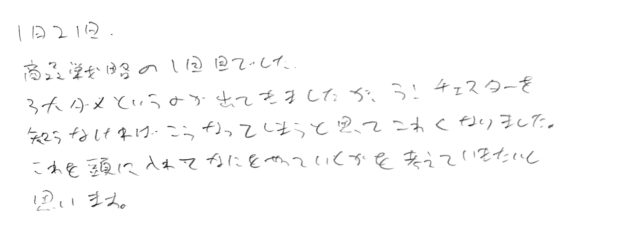 1日21回.
商品戦略の1回目でした.
3大ダメというのが出てきましたが、う! チェスターを
知らなければこうなってしまうと思ってこわくなりました。
これを頭に入れてなにをやっていくかを考えていきたいと
思います。